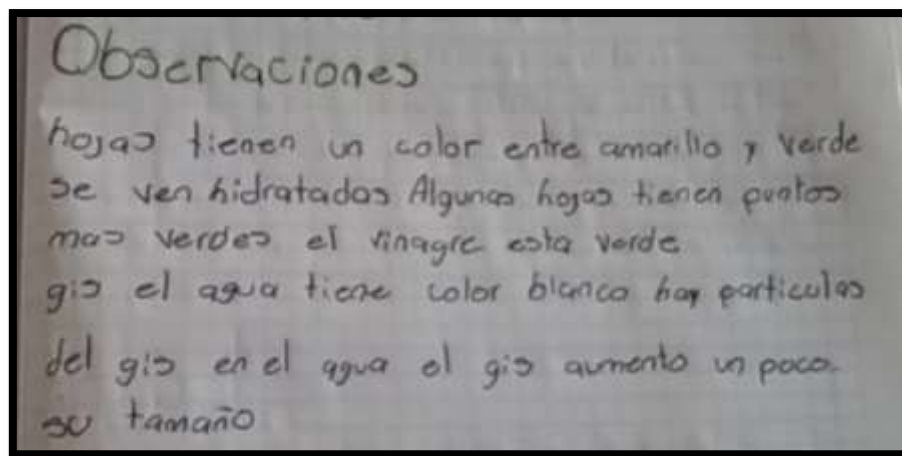 Observaciones
hojas tienen un color entre amarillo y verde
se ven hidratados Algunas hojas tienen puntos
mas verdes el vinagre esta verde
gis el agua tiene color blanco hay particulas
del gis en el agua el gis aumento un poco.
su tamaño